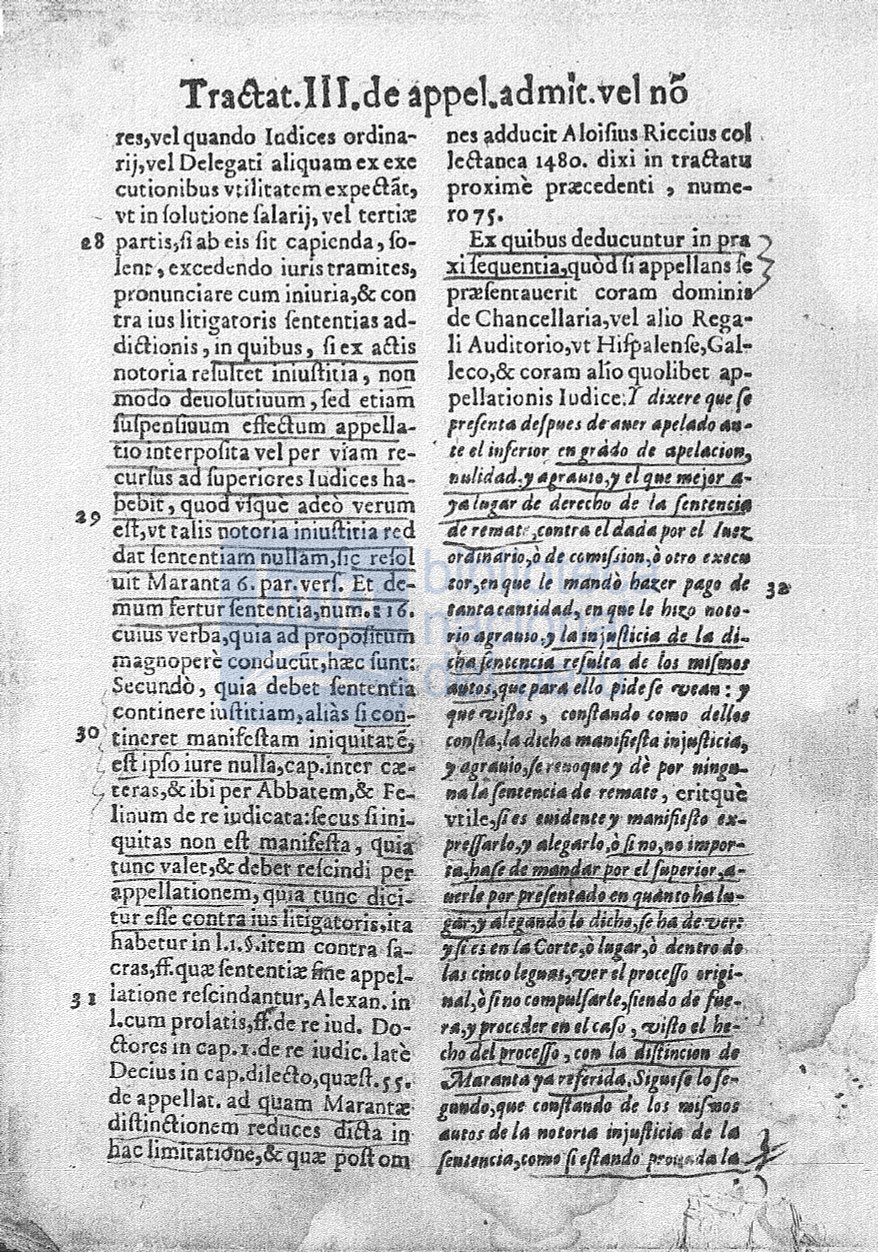 Tractat.III.de appel.admit.vel nõ
res,vel quando Iudices ordina-
rij,vel Delegati aliquam ex exe
cutionibus vtilitatem expectãt,
vt in solutione salarij, vel tertiæ
28 partis,si ab eis sit capienda, so-
lent, excedendo iuris tramites,
pronunciare cum iniuria,& con
tra ius litigatoris sententias ad-
dictionis, in quibus, si ex actis
notoria resultet iniustitia, non
modo deuolutiuum, sed etiam
suspensiuum effectum appella-
tio interposita vel per viam re-
cursus ad superiores Iudices ha-
bebit, quod vsquè adeò verum
29 est,vt talis notoria iniustitia red
dat sententiam nullam,sic resol
uit Maranta 6. par. vers. Et de-
mum fertur sententia,num.116.
cuius verba,quia ad propositum
magnoperè conducũt,hæc sunt:
Secundò, quia debet sententia
continere iustitiam,aliàs si con-
30 tineret manifestam iniquitatẽ,
est ipso iure nulla,cap.inter cæ-
teras,& ibi per Abbatem,& Fe-
linum de re iudicata:secus si ini-
quitas non est manifesta, quia
tunc valet,& debet rescindi per
appellationem, quia tunc dici-
tur esse contra ius litigatoris,ita
habetur in l.1.§.item contra sa-
cras,ff.quæ sententiæ sine appel-
31 latione rescindantur,Alexan.in
l.cum prolatis,ff.de re iud. Do-
ctores in cap.1.de re iudic. latè
Decius in cap.dilecto,quæst.55.
de appellat. ad quam Marantæ
distinctionem reduces dicta in
hac limitatione,& quæ post om
nes adducit Aloisius Riccius col
lectanea 1480. dixi in tractatu
proximè præcedenti, nume-
ro 75.
Ex quibus deducuntur in pra
xi sequentia,quòd si appellans se
præsentauerit coram dominis
de Chancellaria,vel alio Rega-
li Auditorio,vt Hispalense,Gal-
leco,& coram alio quolibet ap-
pellationis Iudice.I dixere que se
presenta despues de auer apelado an-
te el inferior en grado de apelacion,
nulidad,y agrauio,y el que mejor a-
ya lugar de derecho de la sentencia
de remate,contra el dada por el Iuez
ordinario,ò de comission,ò otro execu
tor,en que le mandò hazer pago de 32
tanta cantidad, en que le hizo noto-
rio agrauio,y la injusticia de la di-
cha sentencia resulta de los mismos
autos,que para ello pide se vean: y
que vistos, constando como dellos
consta,la dicha manifiesta injusticia,
y agrauio,se reuoque y dè por ningu-
na la sentencia de remate, eritquè
vtile,si es euidente y manifiesto ex-
pressarlo,y alegarlo,ò si no,no impor-
ta,hase de mandar por el superior,a-
uerle por presentado en quanto ha lu-
gar,y alegando lo dicho,se ha de ver:
y si es en la Corte,ò lugar,ò dentro de
las cinco leguas,ver el processo origi-
nal,ò si no compulsarle,siendo de fue-
ra,y proceder en el caso, visto el he-
cho del processo, con la distincion de
Maranta ya referida.Siguese lo se-
gundo,que constando de los mismos
autos de la notoria injusticia de la
sentencia,como si estando prouada la
biblioteca
nacional
del perú